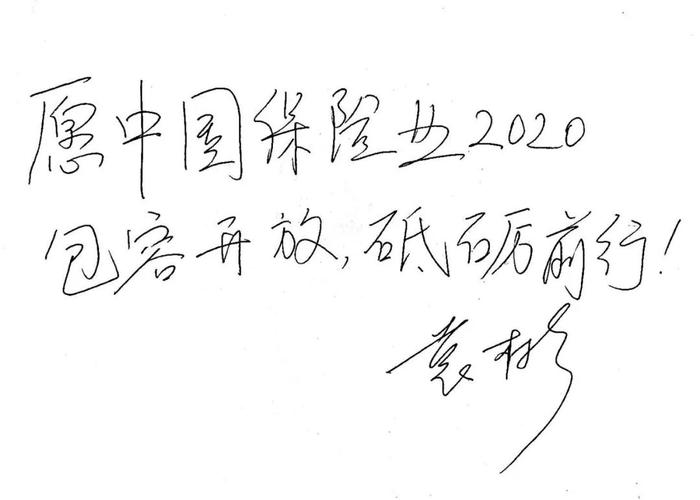 愿中国保险业2020
包容开放,砥砺前行!
袁彬